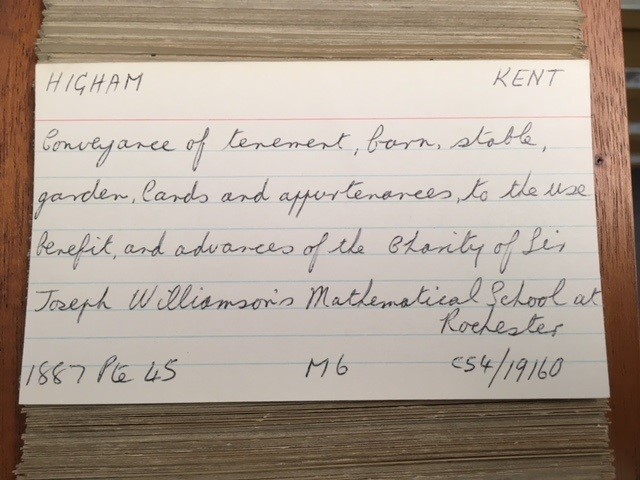 HIGHAM KENT
Conveyance of tenement, barn, stable,
garden, lands and appurtenances, to the use
benefit, and advances of the Charity of Sir
Joseph Williamson's Mathematical School at
Rochester
1887 Pte 45 M6 C54/19160